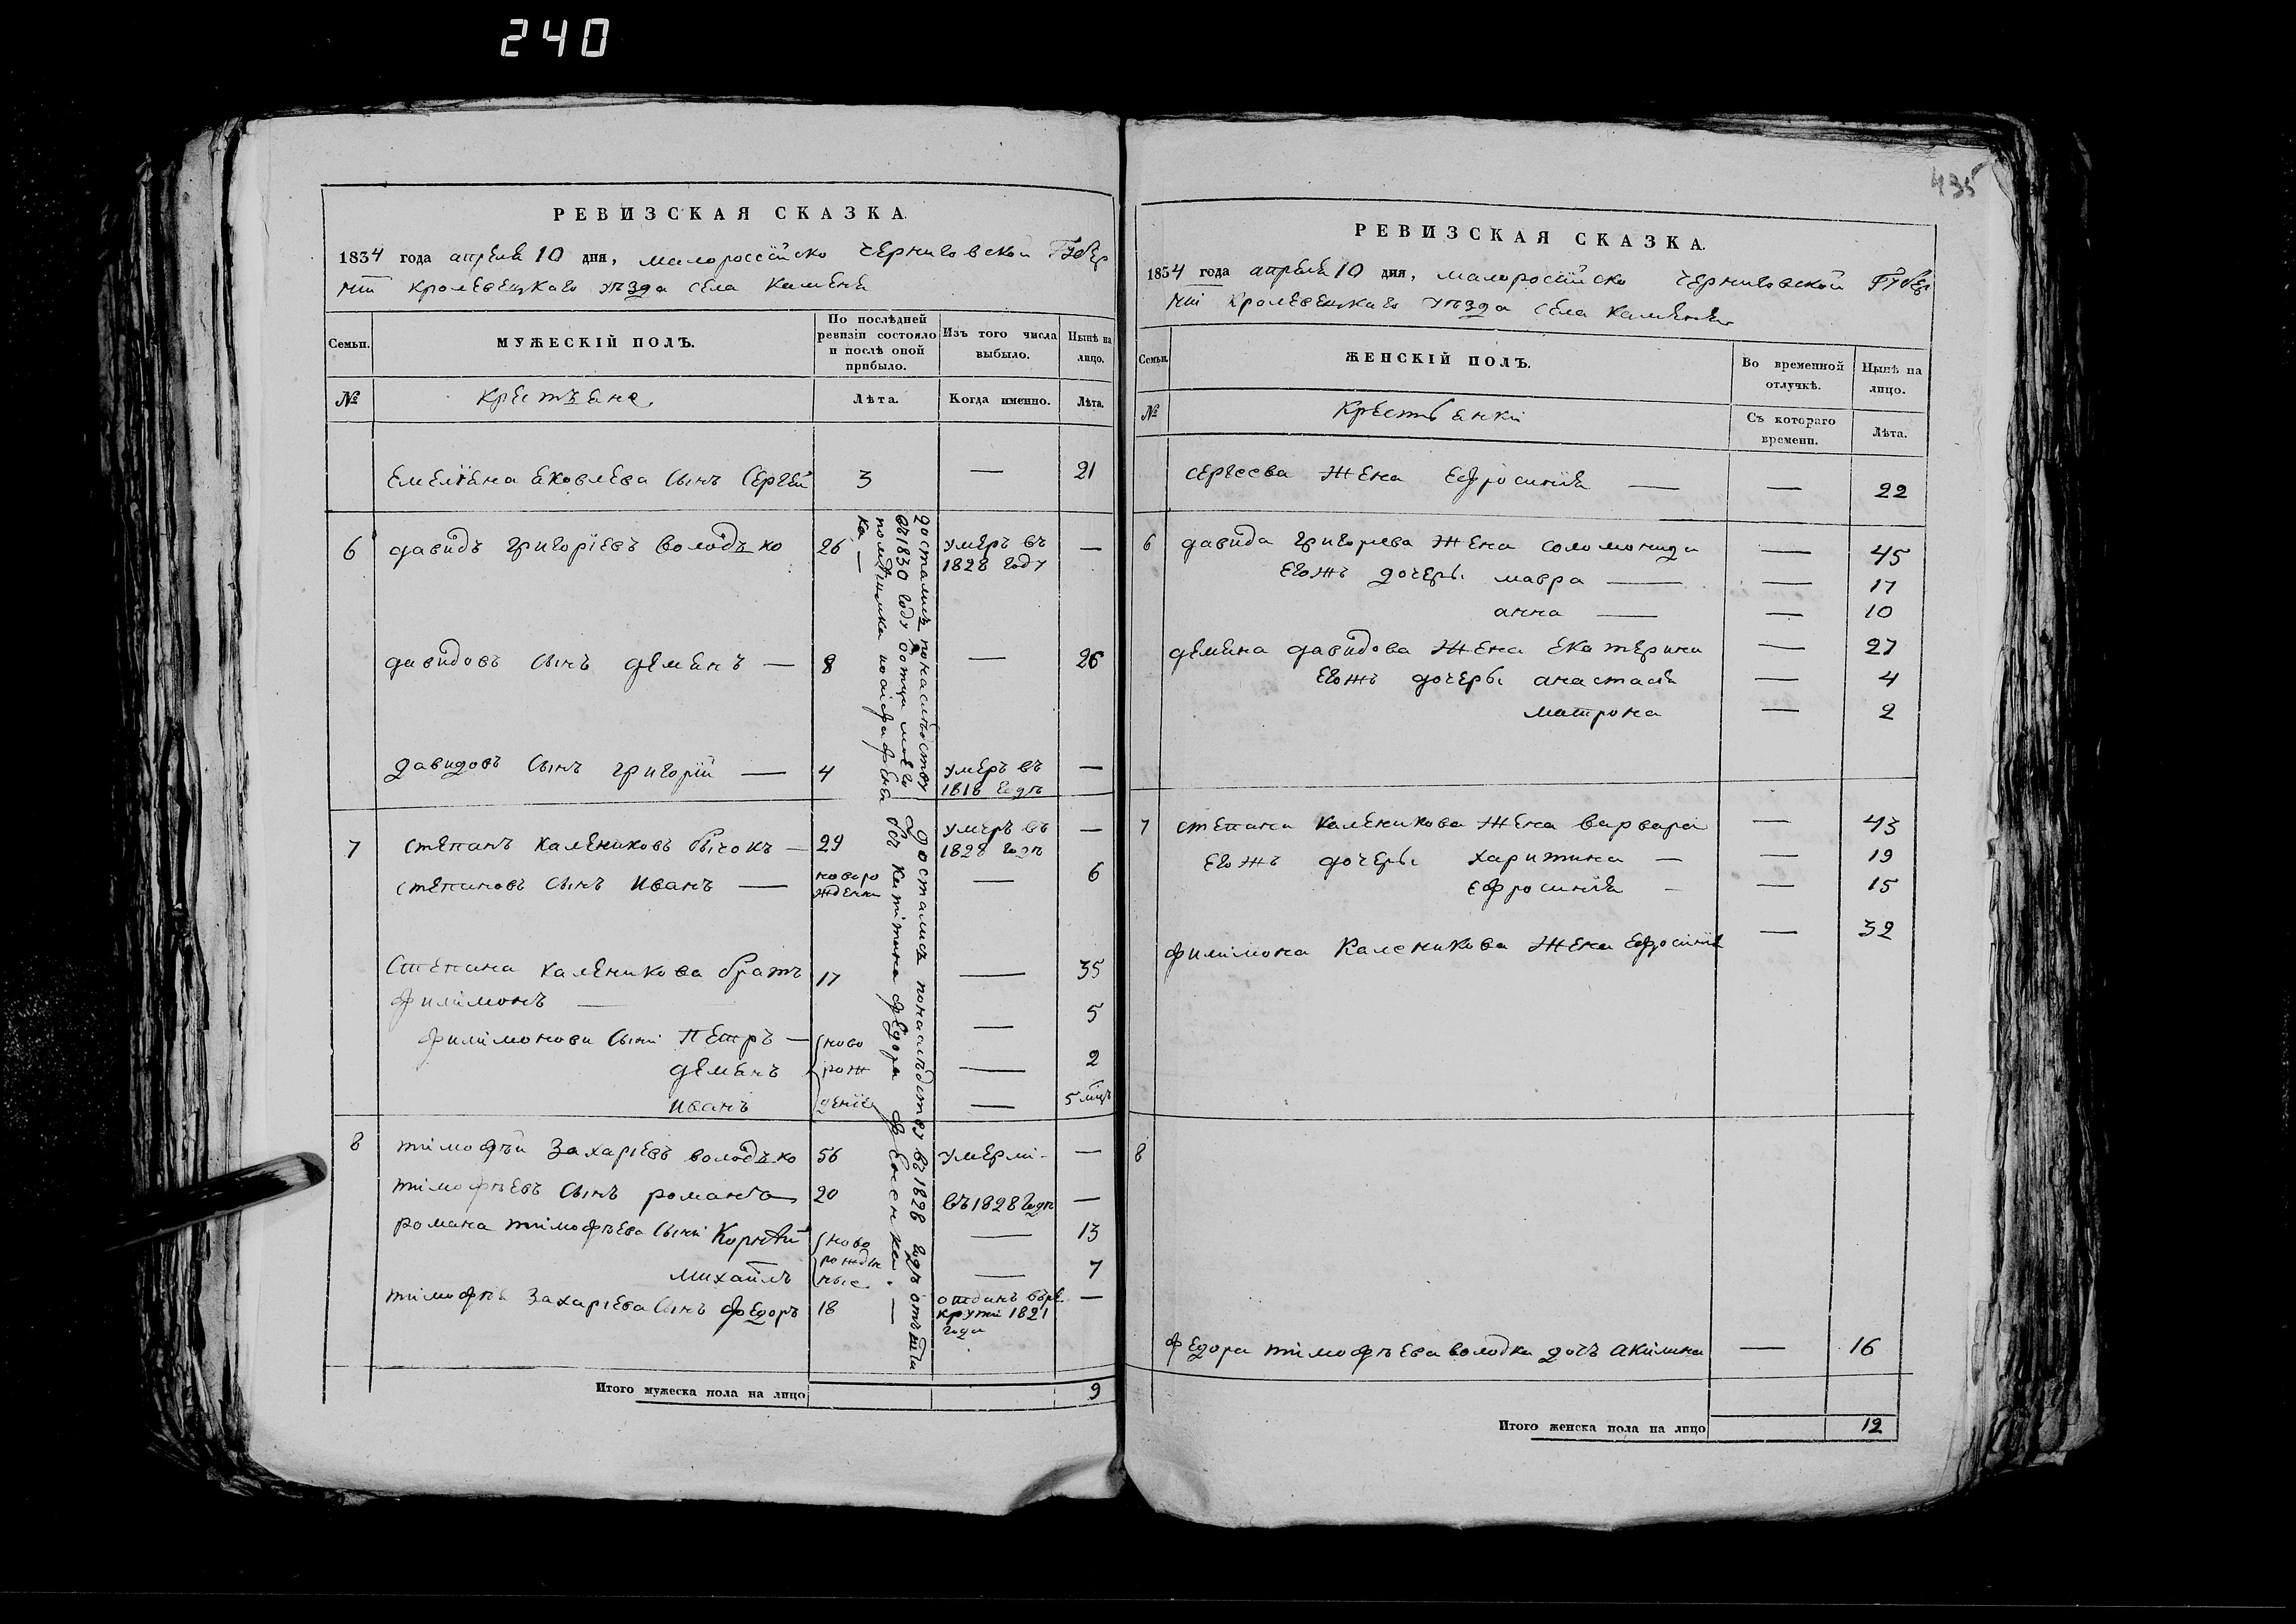 240
435
РЕВИЗСКАЯ СКАЗКА.
1834 года апреля 10 дня, малороссійско черниговской Губер
ніи кролевецкаго уѣзда села Каменя
Семьи.
МУЖЕСКІЙ ПОЛЪ.
По послѣдней ревизіи состояло и послѣ оной прибыло.
Изъ того числа выбыло.
Нынѣ на лицо.
№
Крестьяне
Лѣта.
Когда именно.
Лѣта.
Емельяна Яковлева сынъ Сергей 3 — 21
6 давидъ григоріевъ володько 26 умеръ въ 1828 году —
давидовъ сынъ демянъ — 8 — 26
давидовъ сынъ григорій — 4 умеръ въ 1818 годѣ —
достались по наслѣдству
въ 1830 году отъ отца моего
7 степанъ калениковъ бычокъ — 29 умеръ въ 1828 годѣ —
степановъ сынъ иванъ — новорожденни — 6
Степана каленикова братъ 17 — 35
филімонъ —
филімонови сыні петръ — ново — 5
демянъ рож — 2
иванъ деніе — 5 мцъ
достались по наслѣдству въ 1828 годѣ отъ
8 тімофѣй захаріевъ володько 56 умерли —
тімофѣевъ сынъ романъ 20 въ 1828 годѣ —
романа тімофѣева сыні Корнѣй ново — 13
михайлъ рожденные — 7
тімофѣя захаріева сынъ федоръ 18 отданъ въ рекруты 1821 года —
Итого мужеска пола на лицо 9
РЕВИЗСКАЯ СКАЗКА.
1834 года апреля 10 дня, малоросійско черниговской Губер
ніи кролевецкаго уѣзда села каменя
Семьи.
ЖЕНСКІЙ ПОЛЪ.
Во временной отлучкѣ.
Нынѣ на лицо.
№
Крестьянки
Съ котораго времени.
Лѣта.
сергеева жена Ефросинія — — 22
6 давида григорева жена соломонида — 45
Егожъ дочеры мавра — — 17
анна — — 10
демяна давидова жена екатерина — 27
Егожъ дочеры анастасія — 4
матрона — 2
7 степана каленикова жена варвара — 43
Егожъ дочеры харитина — — 19
ефросинія — — 15
филімона Каленикова жена Ефросинія — 32
8
федора тімофѣева володка дочъ акилина — 16
Итого женска пола на лицо 12